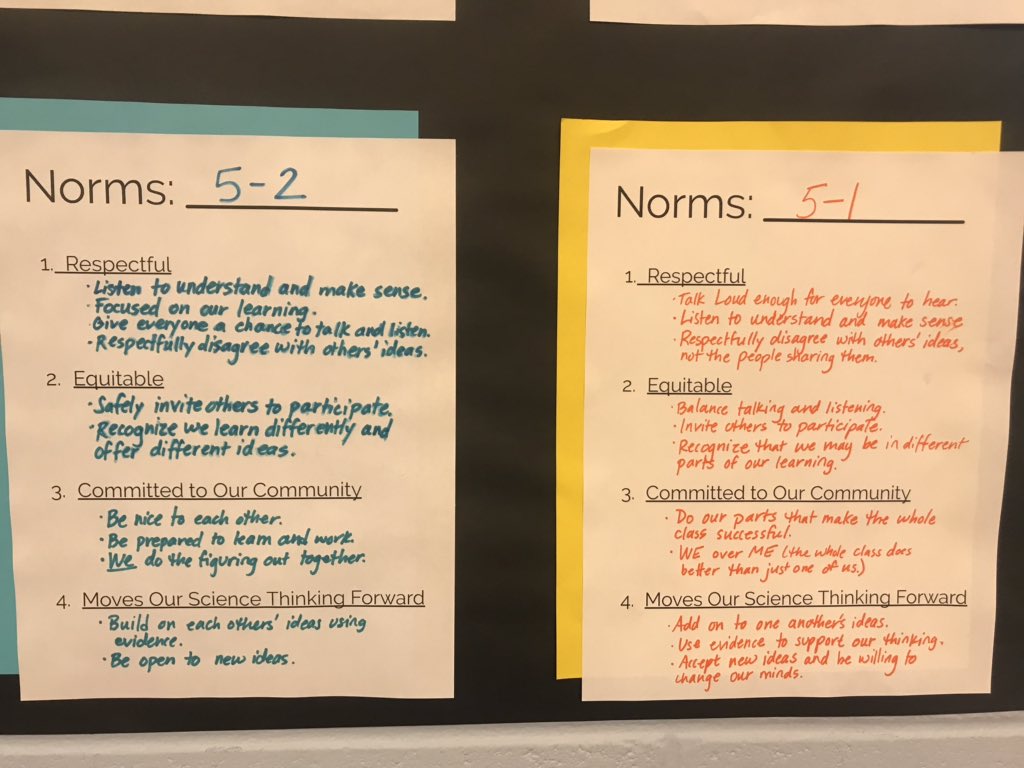 Norms: 5-2
1. Respectful
· Listen to understand and make sense.
· Focused on our learning.
· Give everyone a chance to talk and listen.
· Respectfully disagree with others' ideas.
2. Equitable
· Safely invite others to participate.
· Recognize we learn differently and
offer different ideas.
3. Committed to Our Community
· Be nice to each other.
· Be prepared to learn and work.
· We do the figuring out together.
4. Moves Our Science Thinking Forward
· Build on each others' ideas using
evidence.
· Be open to new ideas.
Norms: 5-1
1. Respectful
· Talk Loud enough for everyone to hear.
· Listen to understand and make sense
· Respectfully disagree with others' ideas,
not the people sharing them.
2. Equitable
· Balance talking and listening.
· Invite others to participate.
· Recognize that we may be in different
parts of our learning.
3. Committed to Our Community
· Do our parts that make the whole
class successful.
· WE over ME (the whole class does
better than just one of us.)
4. Moves Our Science Thinking Forward
· Add on to one another's ideas.
· Use evidence to support our thinking.
· Accept new ideas and be willing to
change our minds.